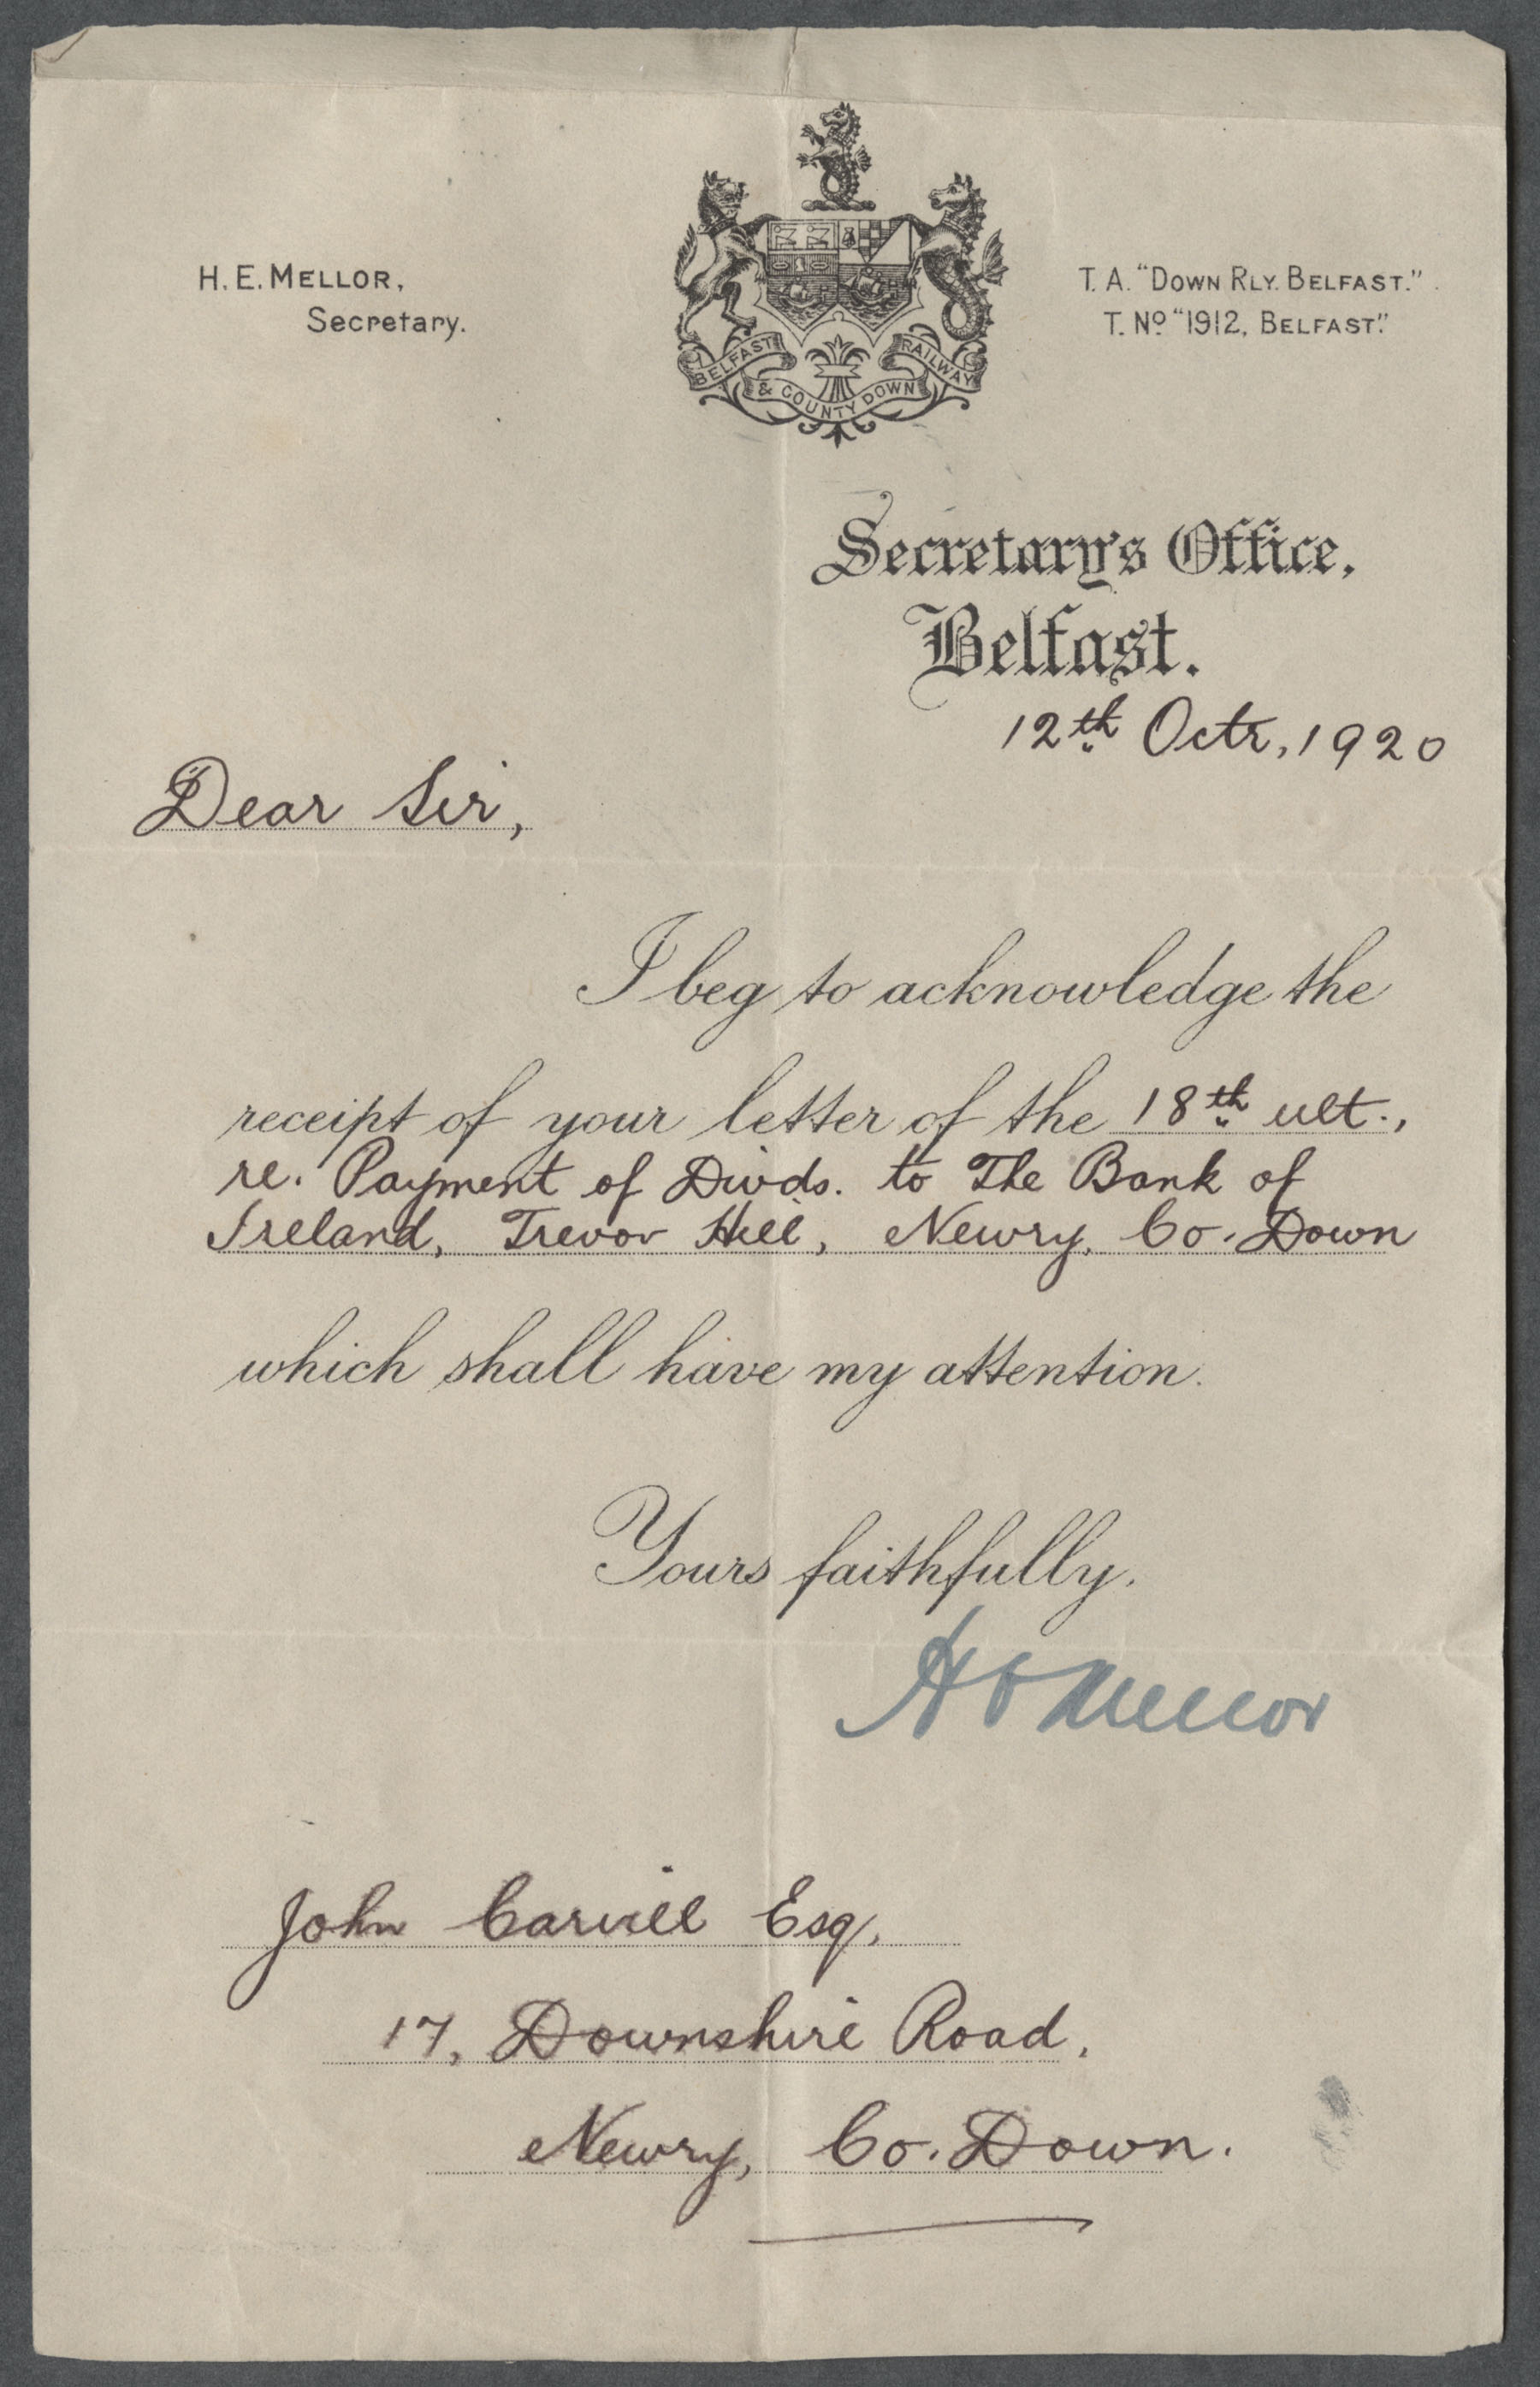 H. E. MELLOR,
Secretary.
BELFAST & COUNTY DOWN RAILWAY
T. A. "DOWN RLY. BELFAST."
T. No "1912, BELFAST."
Secretary's Office,
Belfast.
12th Octr, 1920
Dear Sir,
I beg to acknowledge the
receipt of your letter of the 18th ult.,
re. Payment of Divds. to The Bank of
Ireland, Trevor Hill, Newry, Co. Down
which shall have my attention.
Yours faithfully.
H E Mellor
John Carvill Esq,
17, Downshire Road,
Newry, Co. Down.